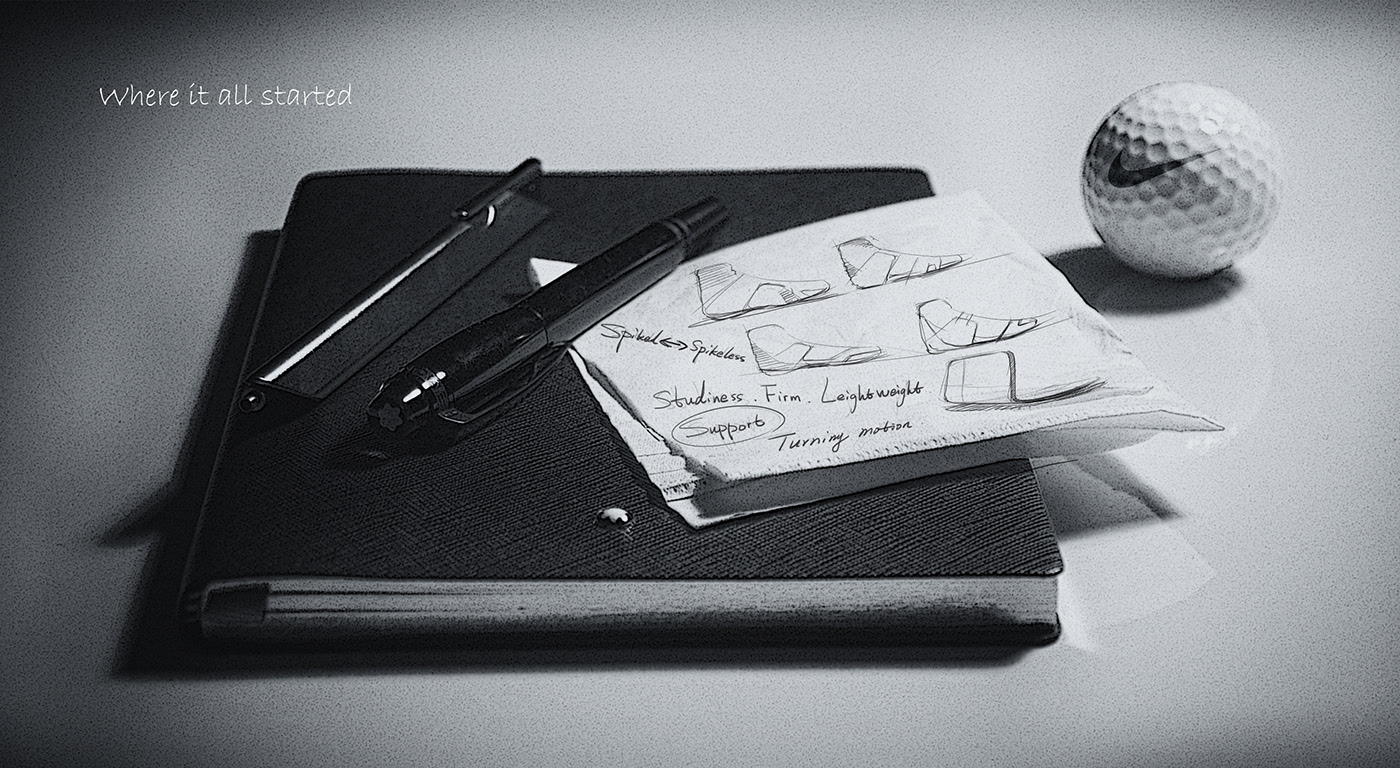 Where it all started
Spiked <-> Spikeless
Studiness . Firm . Leightweight
Support
Turning motion